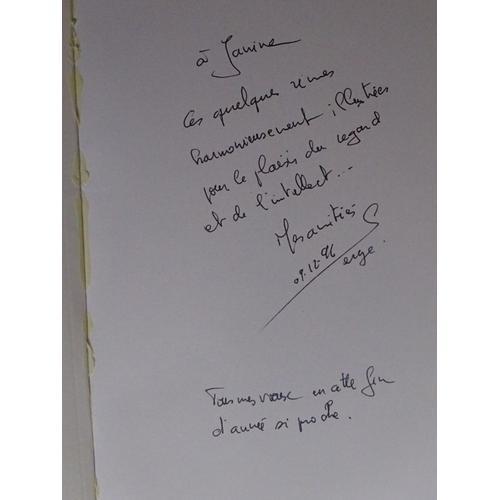 à Janine
Ces quelques rimes
harmonieusement illustrées
pour le plaisir du regard
et de l'intellect...
Mes amitiés
09.12.96
Serge.
Tous mes vœux en cette fin
d'année si proche.